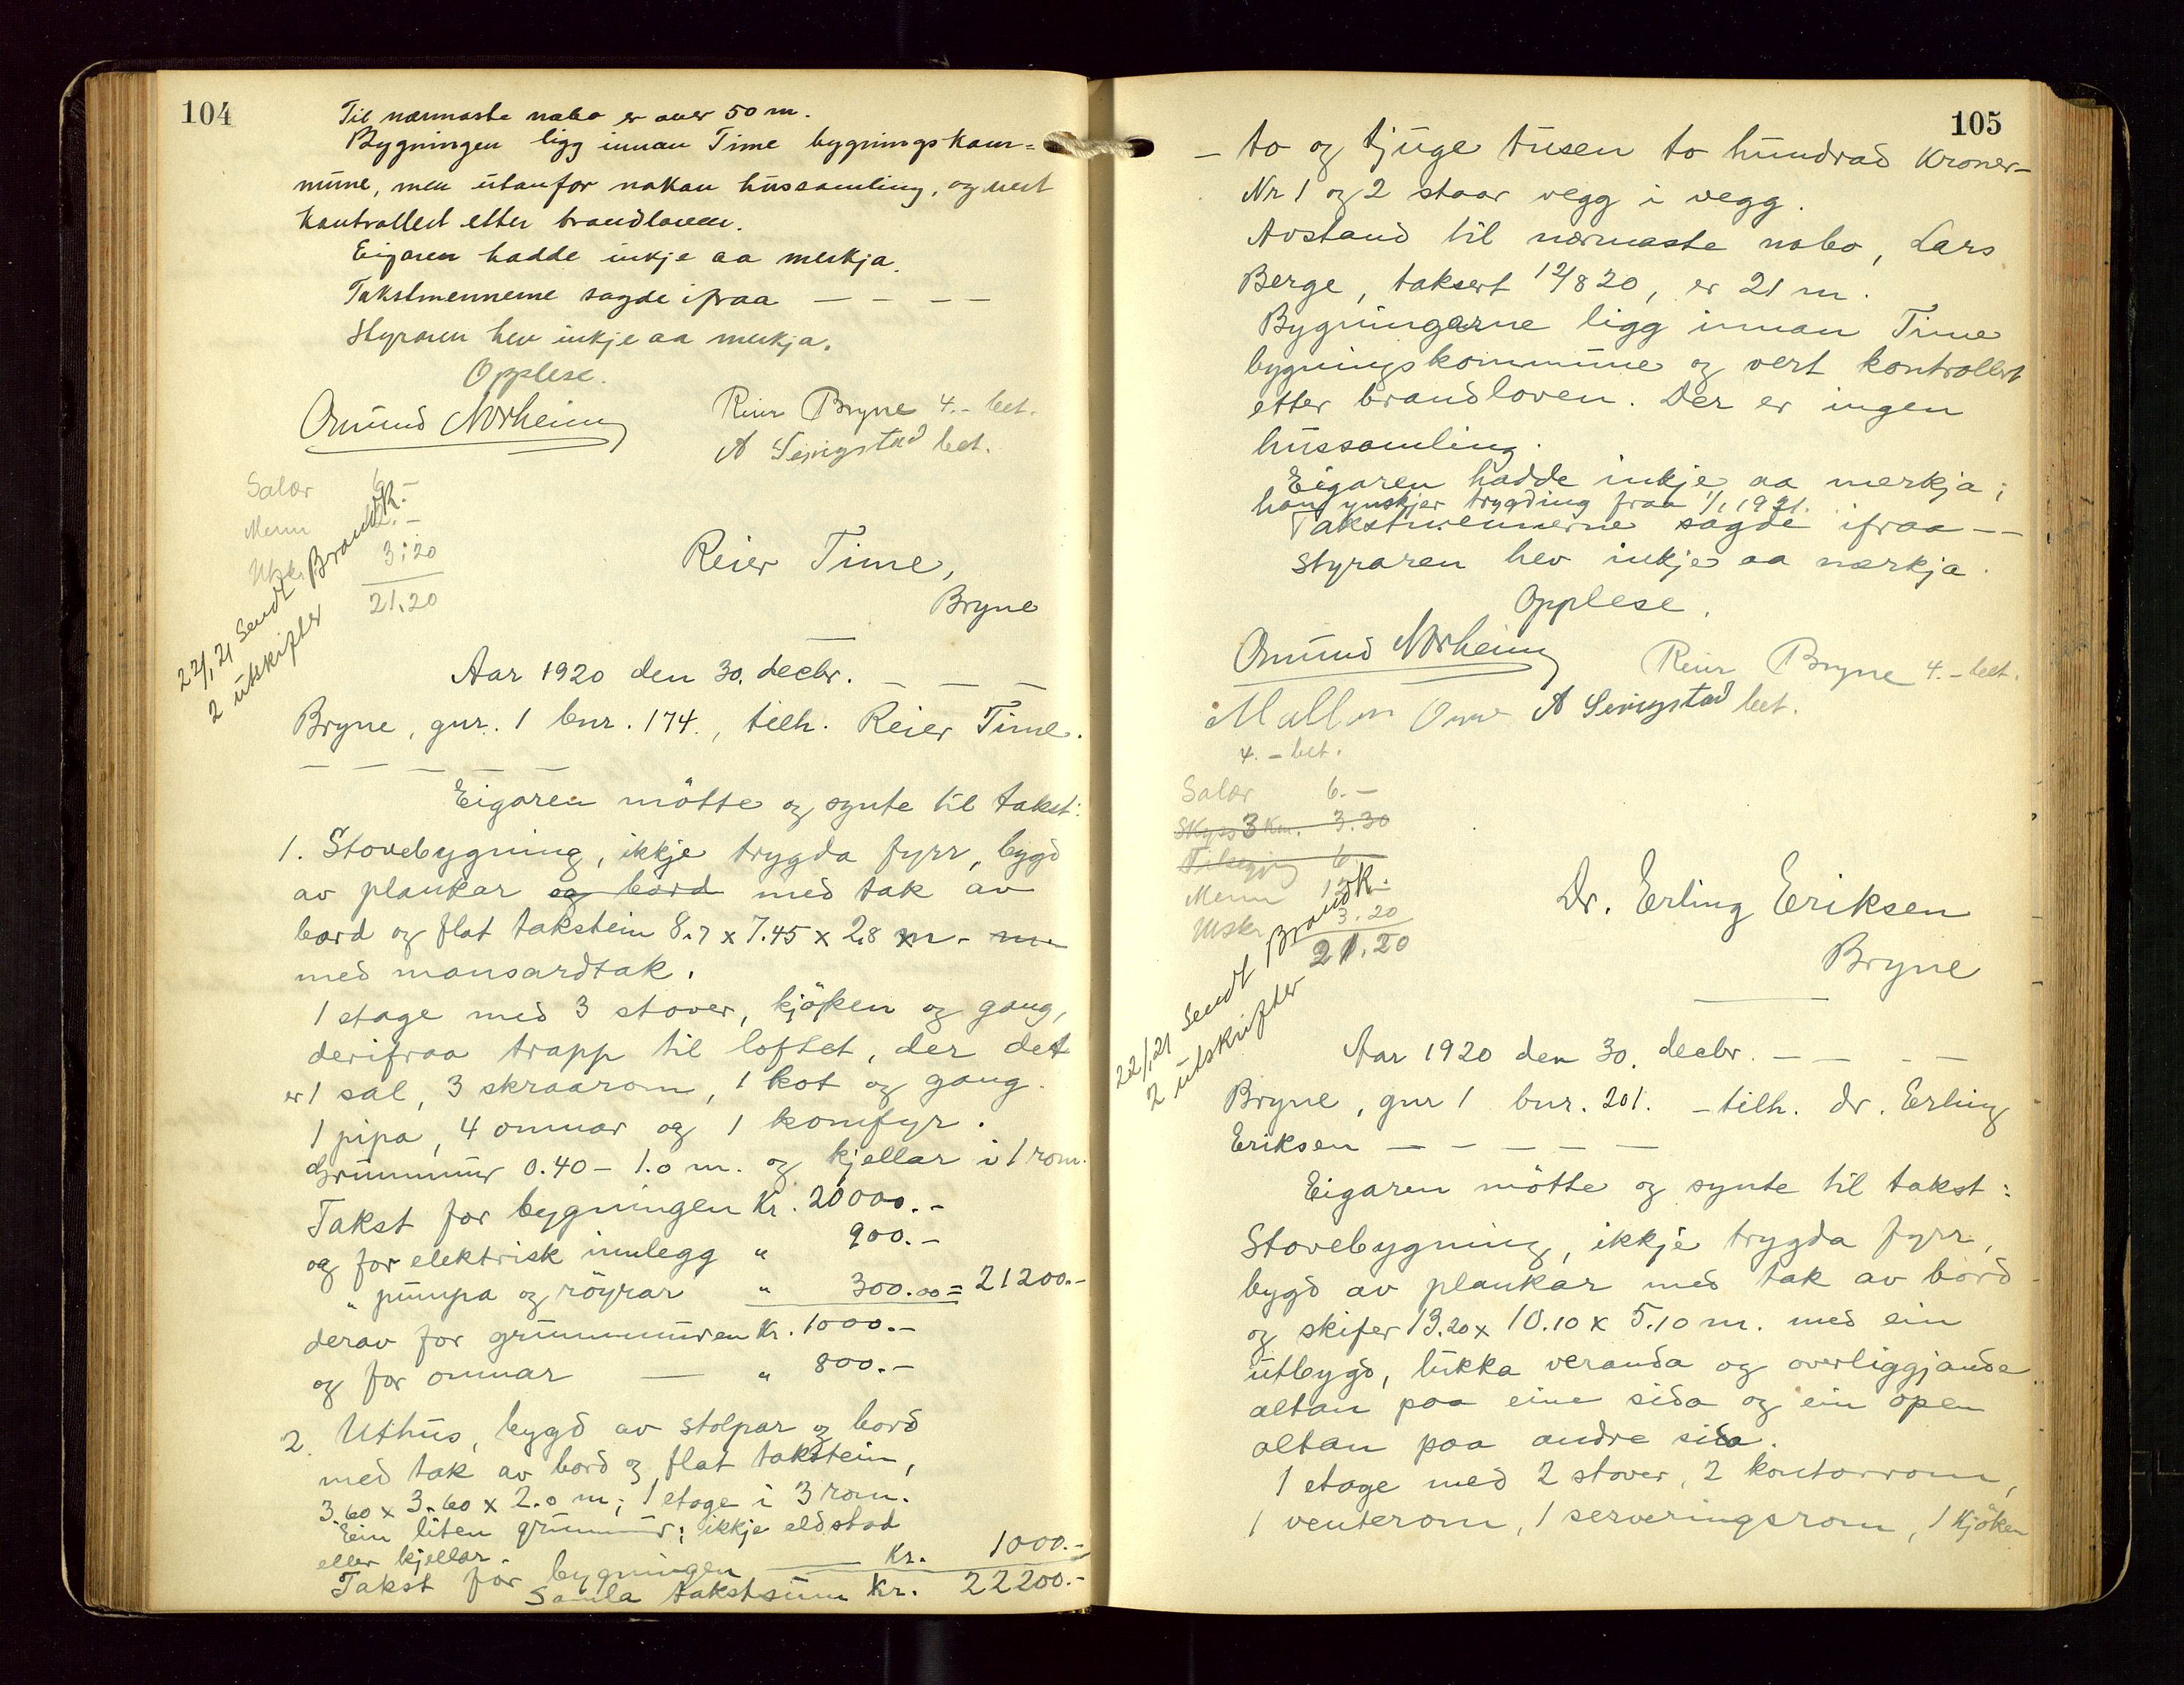 104
Til nærmaste nabo er over 50 m.
Bygningen ligg innan Time bygningskom=
mune, men utanfor nokon hussamling, og vert
kontrollert etter brandloven.
Eigaren hadde inkje aa merkja.
Takstmennerne sagde ifraa — — — —
Styraren hev inkje aa merkja.
Opplese.
Omund Norheim
Reier Bryne 4.- bet.
A Serigstad bet.
Salær 6.-
Menn 12.-
Utskr. 3.20
21.20
22/1 21 Sendt Brandk.
2 utskrifter
Reier Time,
Bryne
Aar 1920 den 30. decbr. — — —
Bryne, gnr. 1 bnr. 174., tilh. Reier Time.
— — — — —
Eigaren mötte og synte til takst:
1. Stovebygning, ikkje trygda fyrr, bygd
av plankar og bord med tak av
bord og flat takstein 8.7 x 7.45 x 2.8 m. m.
med mansardtak.
1 etage med 3 stover, kjöken og gang,
derifraa trapp til loftet, der det
er 1 sal, 3 skraarom, 1 kot og gang.
1 pipa, 4 omnar og 1 komfyr.
Grunnmur 0.40 - 1.0 m. og kjellar i 1 rom.
Takst for bygningen Kr. 20000.-
og for elektrisk innlegg " 900.-
" pumpa og röyrar " 300.00 = 21200.-
derav for grunnmuren Kr. 1000.-
og for omnar — " 800.-
2. Uthus, bygd av stolpar og bord
med tak av bord og flat takstein,
3.60 x 3.60 x 2.0 m; 1 etage i 3 rom.
Ein liten grunnmur; ikkje eldstad
eller kjellar.
Takst for bygningen — Kr. 1000.-
Samla takstsum Kr. 22200.-
105
— to og tjuge tusen to hundrad Kroner—
Nr 1 og 2 staar vegg i vegg.
Avstand til nærmaste nabo, Lars
Berge, taksert 12/8 20, er 21 m.
Bygningarne ligg innan Time
bygningskommune og vert kontrollert
etter brandloven. Der er ingen
hussamling.
Eigaren hadde inkje aa merkja;
han ynskjer trygding fraa 1/1 1921.
Takstmennerne sagde ifraa — —
Styraren hev inkje aa merkja.
Opplese.
Omund Norheim
Reier Bryne 4.- bet.
A Serigstad bet.
4.- bet.
Salær 6.-
Skyss 3 Km. 3.30
6.-
Menn 12.-
Utskr 3.20
21.20
22/1 21 Sendt Brandk.
2 utskrifter
Dr. Erling Eriksen
Bryne
Aar 1920 den 30. decbr. — — — —
Bryne, gnr 1 bnr. 201. — tilh. dr. Erling
Eriksen — — — — —
Eigaren mötte og synte til takst:
Stovebygning, ikkje trygda fyrr,
bygd av plankar med tak av bord
og skifer 13.20 x 10.10 x 5.10 m. med ein
utbygd, lukka veranda og overliggjande
altan paa eine sida og ein open
altan paa andre sida.
1 etage med 2 stover, 2 kontorrom,
1 venterom, 1 serveringsrom, 1 Kjöken